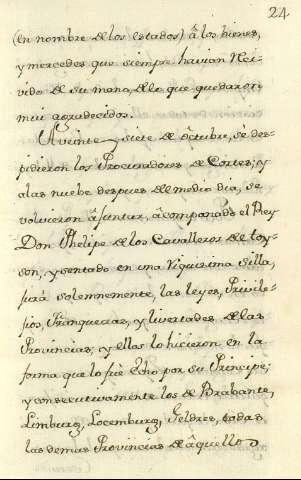 24
(en nombre de los estados) â los bienes,
y mercedes que siempre havian Reci-
vido de su mano, de lo que quedaron
mui agradecidos.
A veinte y siete de octubre, se des-
pidieron los Procuradores de Cortes; y
a las nuebe despues de medio dia, se
volvieron â juntar, âcompañado el Rey
Don Phelipe de los Cavalleros de toy-
son, y sentado en una riquisima silla,
jurâ solemnemente, las leyes, Privile-
jios, Franquezas, y livertades de las
Provincias; y ellas lo hicieron en la
forma que lo fuè echo por su Principe;
y consecutivamente los de Brabante,
Limburg, Locemburg, Geldres, todas
las demas Provincias de âquello